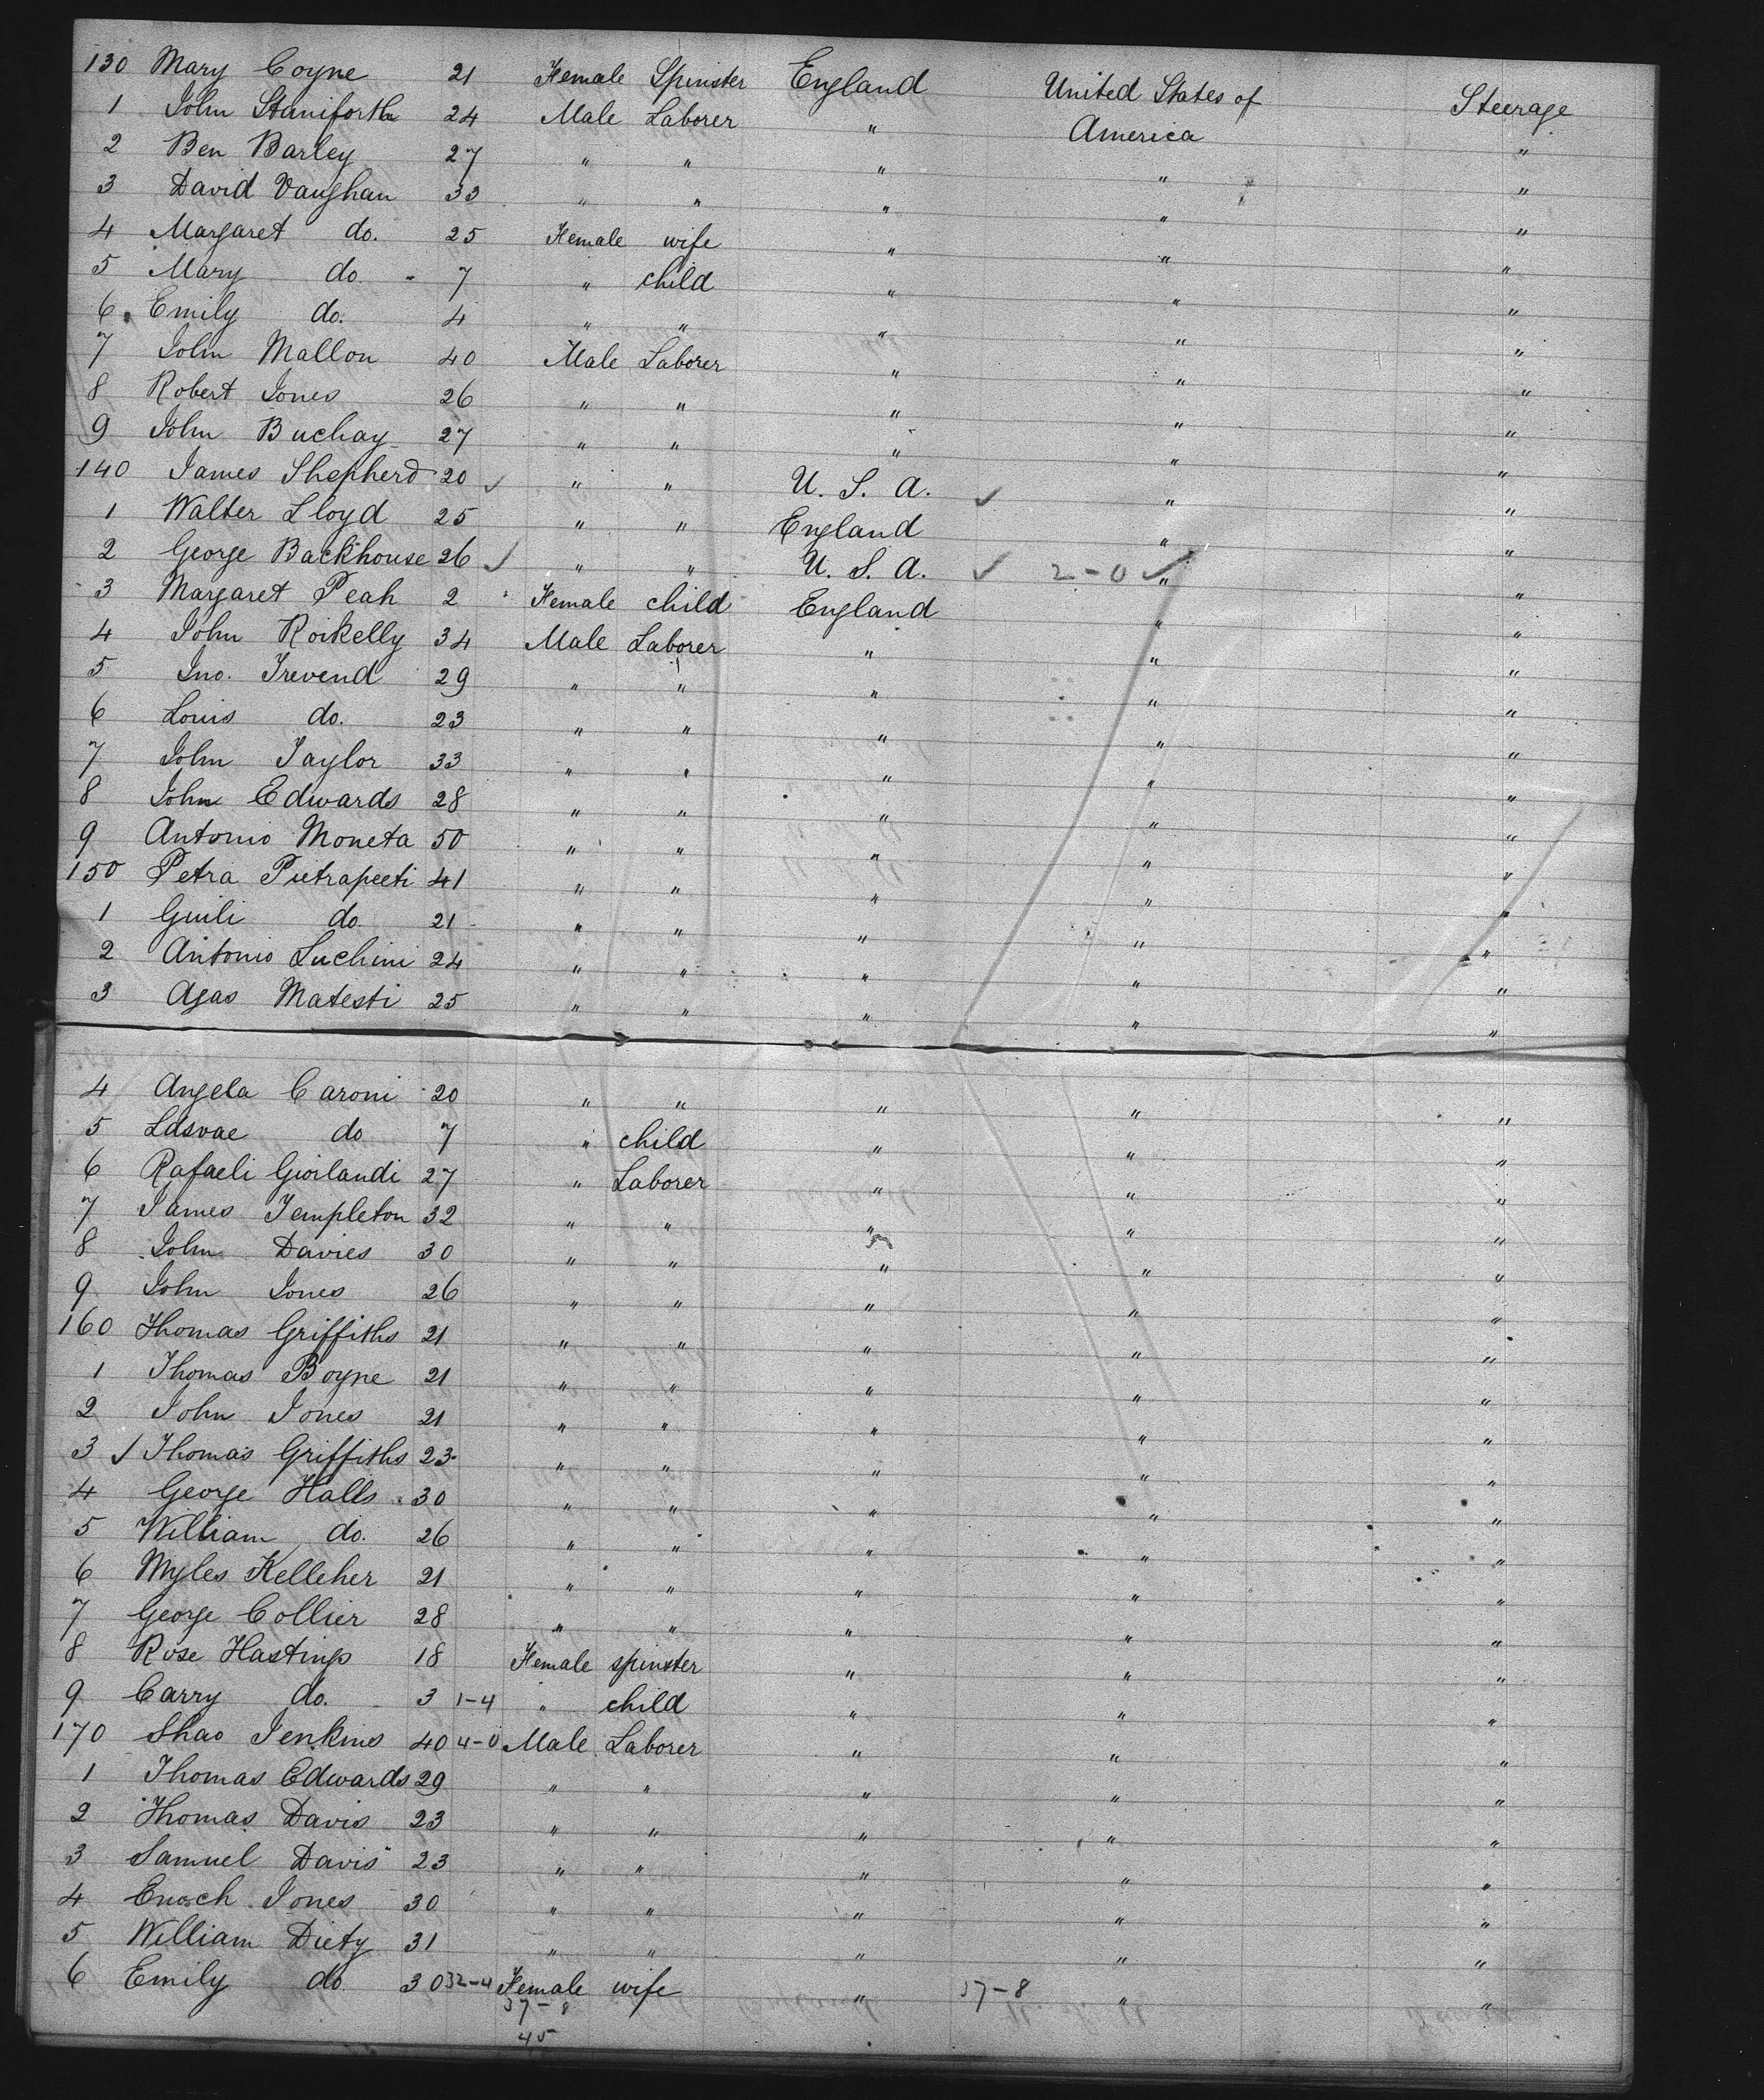 130 Mary Coyne 21 Female Spinster England United States of America Steerage
1 John Staniforth 24 Male Laborer " "
2 Ben Barley 27 " " " " "
3 David Vaughan 33 " " " " "
4 Margaret do. 25 Female wife " " "
5 Mary do. 7 " child " " "
6 Emily do. 4 " " " " "
7 John Mallon 40 Male Laborer " " "
8 Robert Jones 26 " " " " "
9 John Buchay 27 " " " " "
140 James Shepherd 20 ✓ " " U. S. A. ✓ " "
1 Walter Lloyd 25 " " England " "
2 George Backhouse 26 ✓ " " U. S. A. ✓ 2-0 ✓ " "
3 Margaret Peah 2 Female child England " "
4 John Roikelly 34 Male Laborer " " "
5 Jno. Trevend 29 " " " " "
6 Louis do. 23 " " " " "
7 John Taylor 33 " " " " "
8 John Edwards 28 " " " " "
9 Antonio Moneta 50 " " " " "
150 Petra Pietrapeeti 41 " " " " "
1 Guili do 21 " " " " "
2 Antonio Luchini 24 " " " " "
3 Agas Matesti 25 " " " " "
4 Angela Caroni 20 " " " " "
5 Lasvae do 7 " child " " "
6 Rafaeli Giorlandi 27 " Laborer " " "
7 James Templeton 32 " " " " "
8 John Davies 30 " " " " "
9 John Jones 26 " " " " "
160 Thomas Griffiths 21 " " " " "
1 Thomas Boyne 21 " " " " "
2 John Jones 21 " " " " "
3 ✓ Thomas Griffiths 23 " " " " "
4 George Halls 30 " " " " "
5 William do. 26 " " " " "
6 Myles Kelleher 21 " " " " "
7 George Collier 28 " " " " "
8 Rose Hastings 18 Female spinster " " "
9 Carry do. 3 1-4 " child " " "
170 Shao Jenkins 40 4-0 Male Laborer " " "
1 Thomas Edwards 29 " " " " "
2 Thomas Davis 23 " " " " "
3 Samuel Davis 23 " " " " "
4 Enoch Jones 30 " " " " "
5 William Diety 31 " " " " "
6 Emily do 30 32-4 Female wife " 37-8 " "
37-8
45